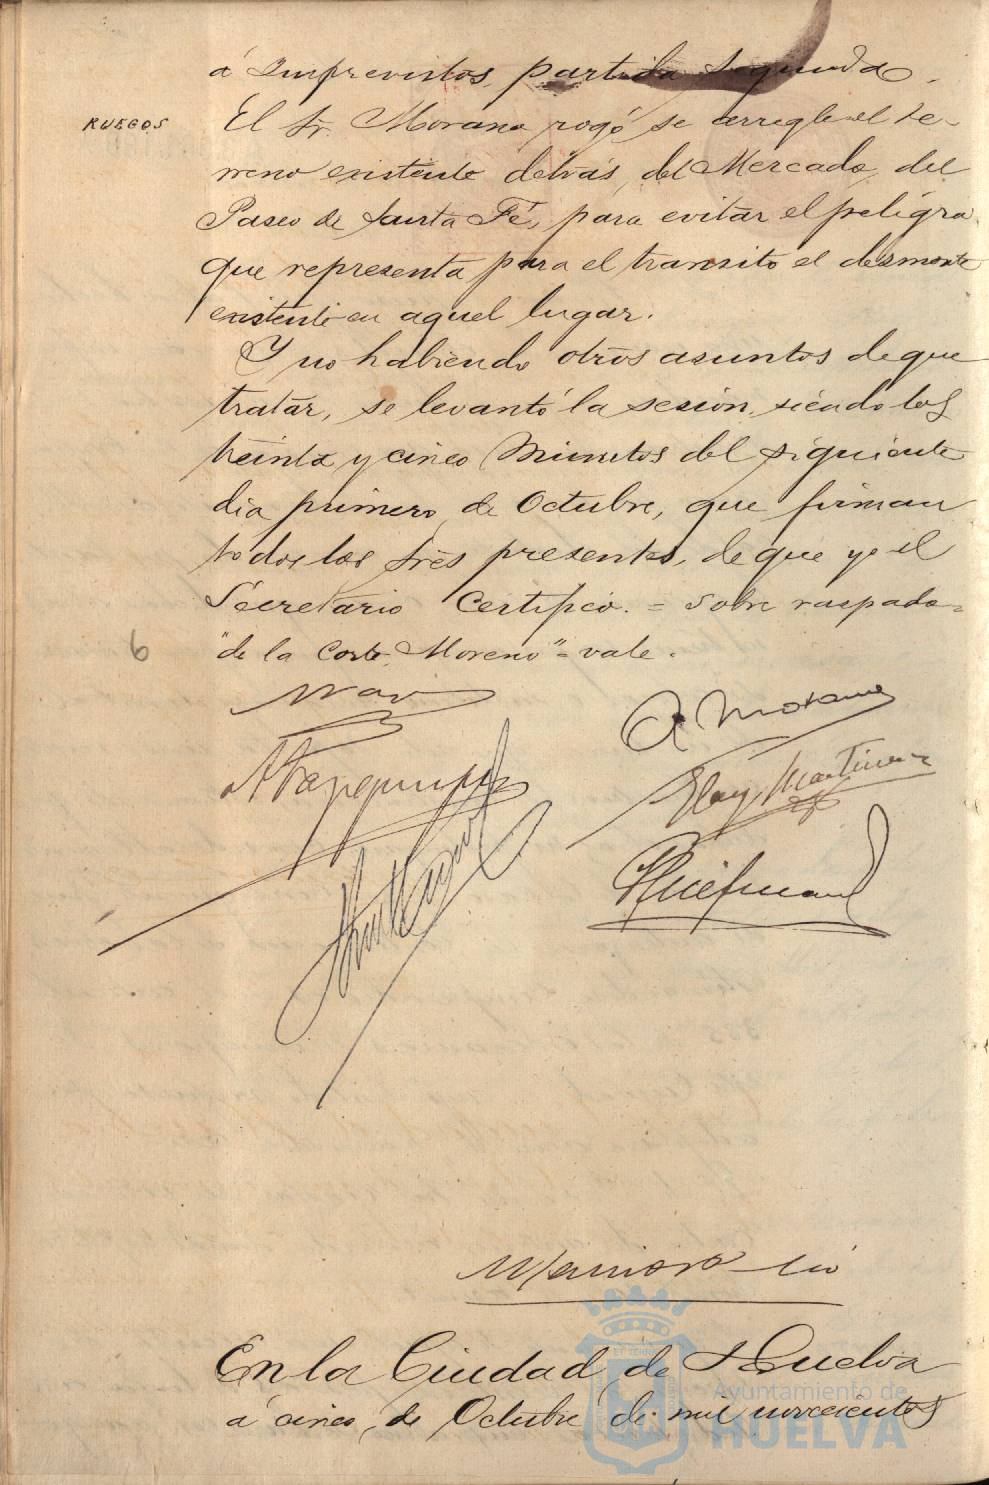 á Imprevistos, partida segunda.
RUEGOS
El Sr. Morano rogó se arregle el te-
rreno existente detrás del Mercado del
Paseo de Santa Fé, para evitar el peligro
que representa para el transito el desmonte
existente en aquel lugar.
Y no habiendo otros asuntos de que
tratar, se levantó la sesión, siendo las
treinta y cinco minutos del siguiente
dia primero de Octubre, que firman
todos los Srēs presentes, de que yo el
Secretario Certifico. = Sobre raspado =
"de la Corte Moreno" = vale.
6
A Morano
Eloy Martinez
En la Ciudad de Huelva
á cinco de Octubre de mil novecientos
Ayuntamiento de
HUELVA